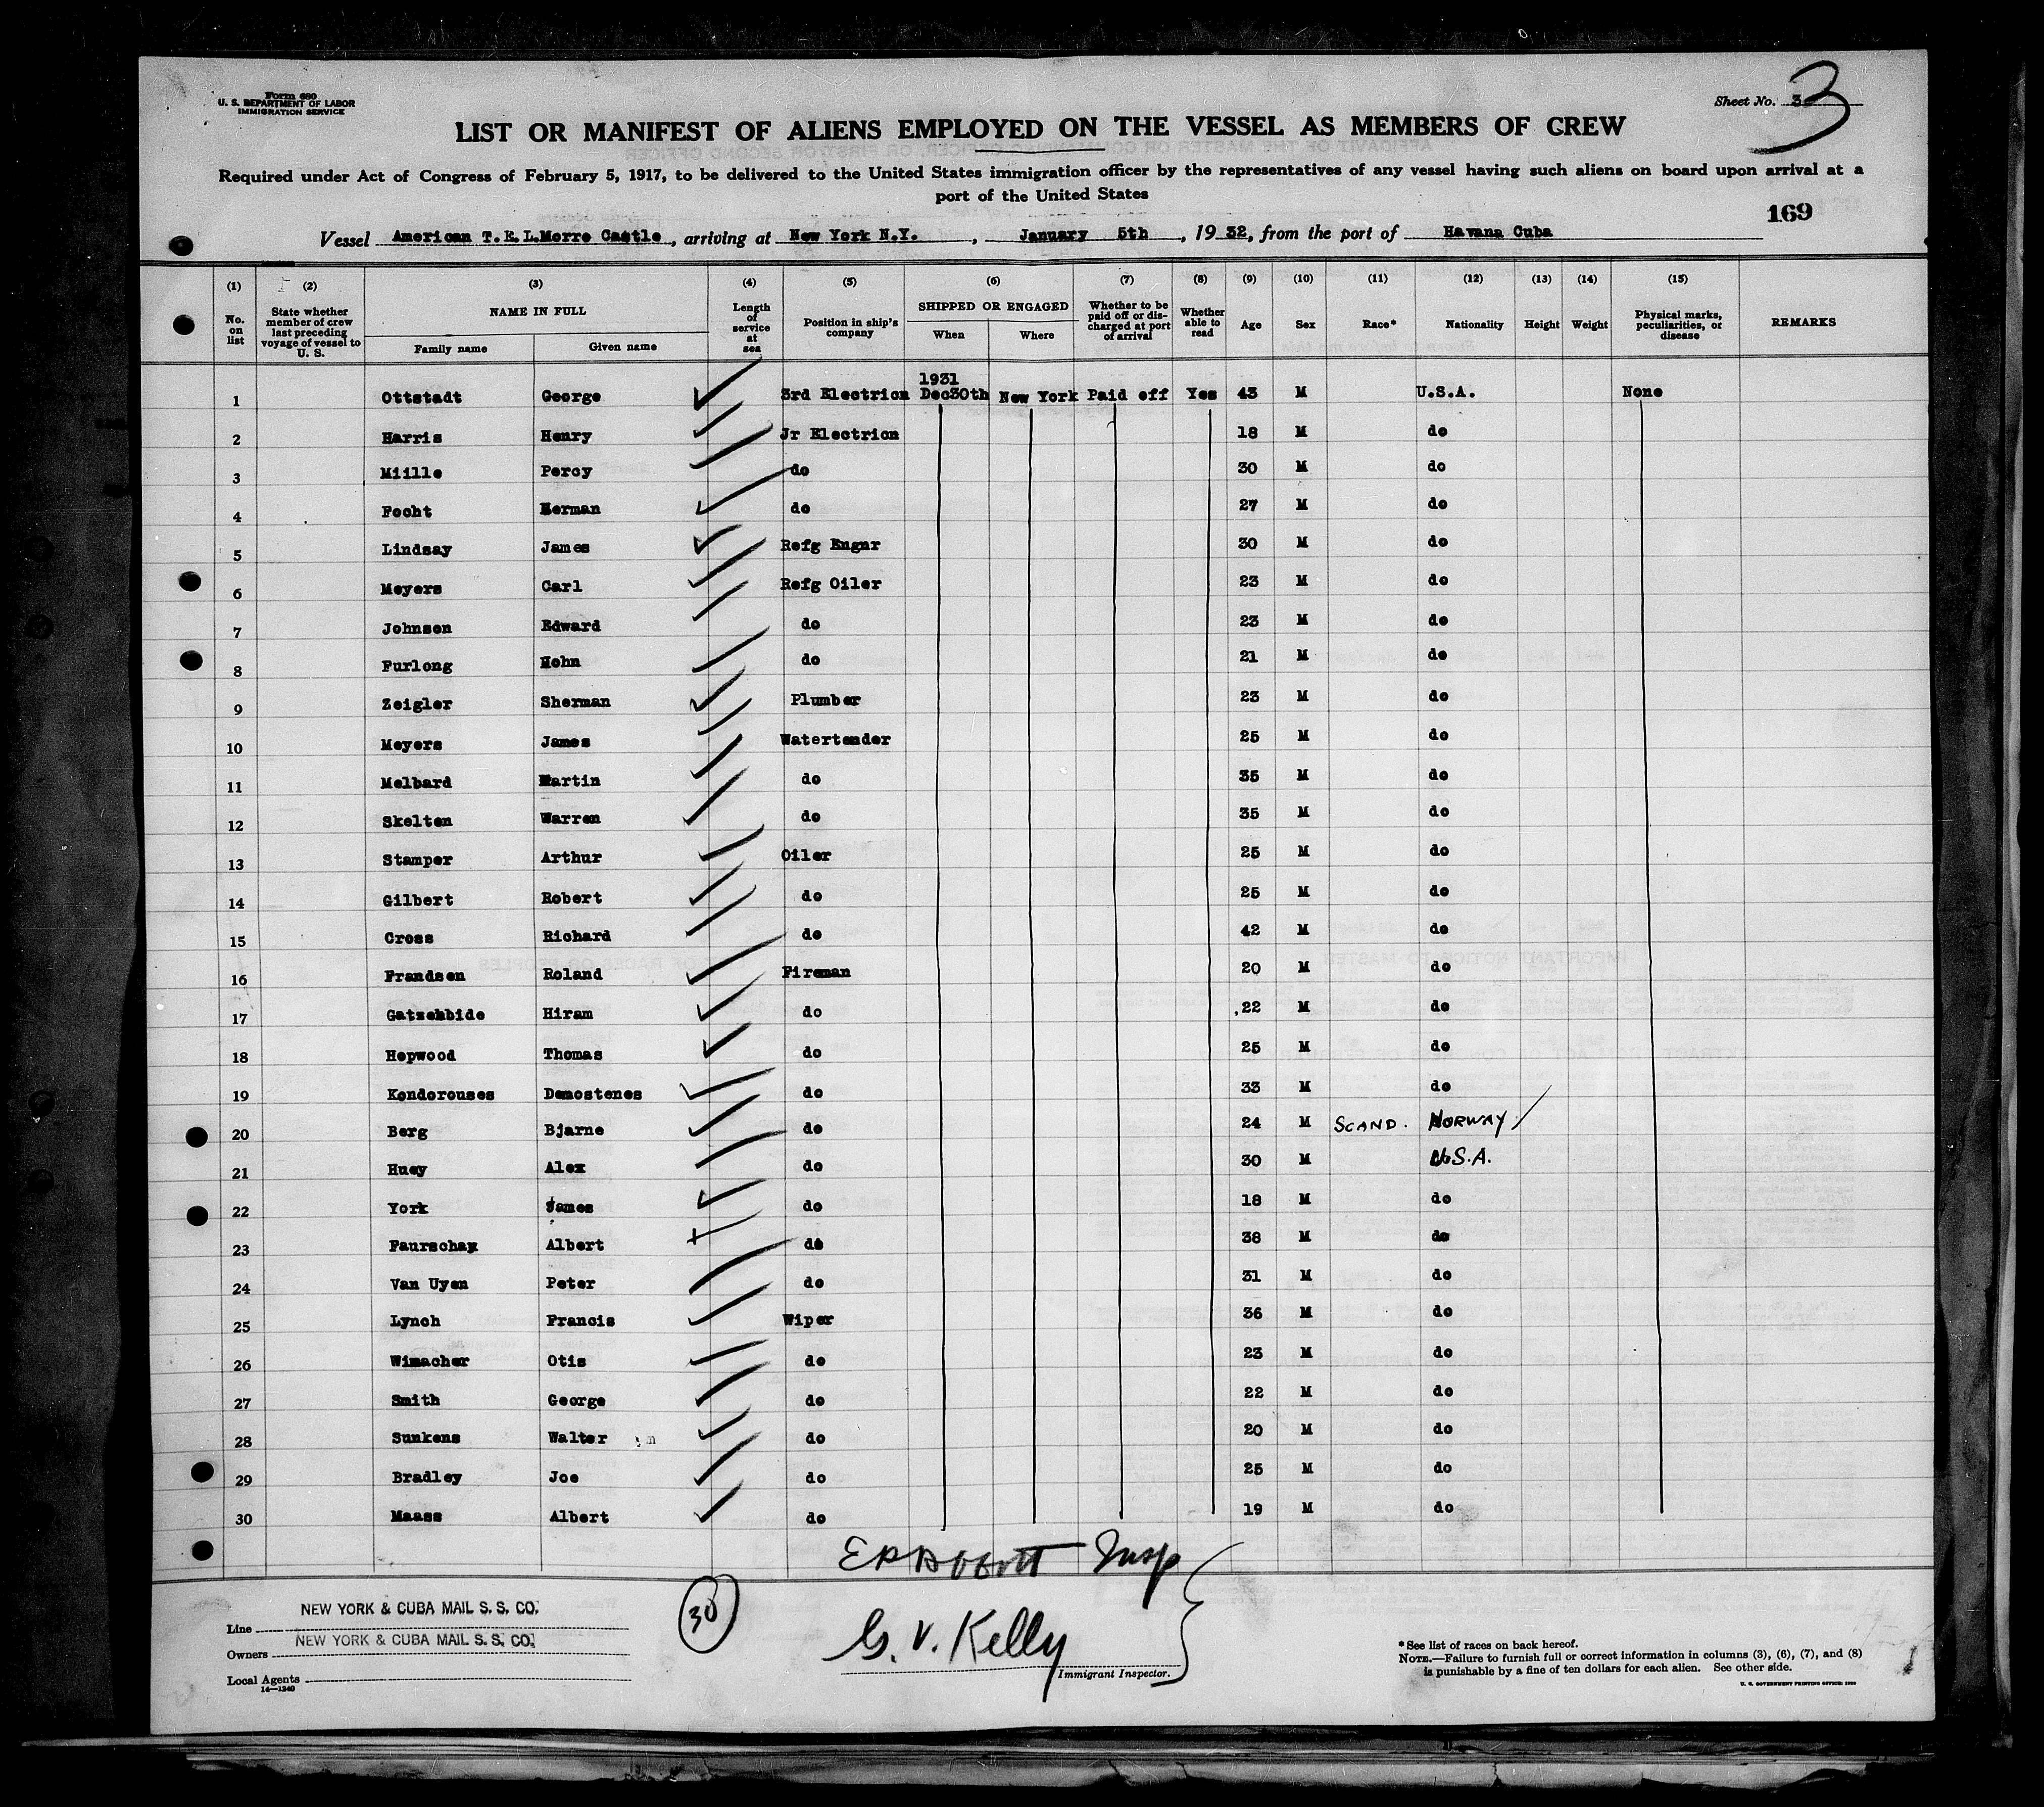 Form 680
U. S. DEPARTMENT OF LABOR
IMMIGRATION SERVICE
Sheet No. 3
3
LIST OR MANIFEST OF ALIENS EMPLOYED ON THE VESSEL AS MEMBERS OF CREW
Required under Act of Congress of February 5, 1917, to be delivered to the United States immigration officer by the representatives of any vessel having such aliens on board upon arrival at a
port of the United States
169
Vessel American T.E.L.Morro Castle, arriving at New York N.Y., January 5th, 1932, from the port of Havana Cuba
(1) No. on list
(2) State whether member of crew last preceding voyage of vessel to U. S.
(3) NAME IN FULL Family name Given name
(4) Length of service at sea
(5) Position in ship's company
(6) SHIPPED OR ENGAGED When Where
(7) Whether to be paid off or discharged at port of arrival
(8) Whether able to read
(9) Age
(10) Sex
(11) Race*
(12) Nationality
(13) Height
(14) Weight
(15) Physical marks, peculiarities, or disease
REMARKS
1931
1 Ottstadt George 3rd Electricn Dec30th New York Paid off Yes 43 M U.S.A. None
2 Harris Henry Jr Electricn 18 M do
3 Miille Percy do 30 M do
4 Focht Herman do 27 M do
5 Lindsay James Refg Engnr 30 M do
6 Meyers Carl Refg Oiler 23 M do
7 Johnson Edward do 23 M do
8 Furlong Hohn do 21 M do
9 Zeigler Sherman Plumber 23 M do
10 Meyers James Watertender 25 M do
11 Melbard Martin do 35 M do
12 Skelton Warren do 35 M do
13 Stamper Arthur Oiler 25 M do
14 Gilbert Robert do 25 M do
15 Cross Richard do 42 M do
16 Frandsen Roland Fireman 20 M do
17 Hiram do 22 M do
18 Hopwood Thomas do 25 M do
19 Kondorouses Demostenes do 33 M do
20 Berg Bjarne do 24 M SCAND. NORWAY
21 Huey Alex do 30 M U.S.A.
22 York James do 18 M do
23 Albert do 38 M do
24 Van Uyen Peter do 31 M do
25 Lynch Francis Wiper 36 M do
26 Wimacher Otis do 23 M do
27 Smith George do 22 M do
28 Sunkens Walter do 20 M do
29 Bradley Joe do 25 M do
30 Maass Albert do 19 M do
Insp
30
G. V. Kelly
Immigrant Inspector.
Line NEW YORK & CUBA MAIL S. S. CO.
Owners NEW YORK & CUBA MAIL S. S. CO.
Local Agents
14—1240
*See list of races on back hereof.
NOTE.—Failure to furnish full or correct information in columns (3), (6), (7), and (8)
is punishable by a fine of ten dollars for each alien. See other side.